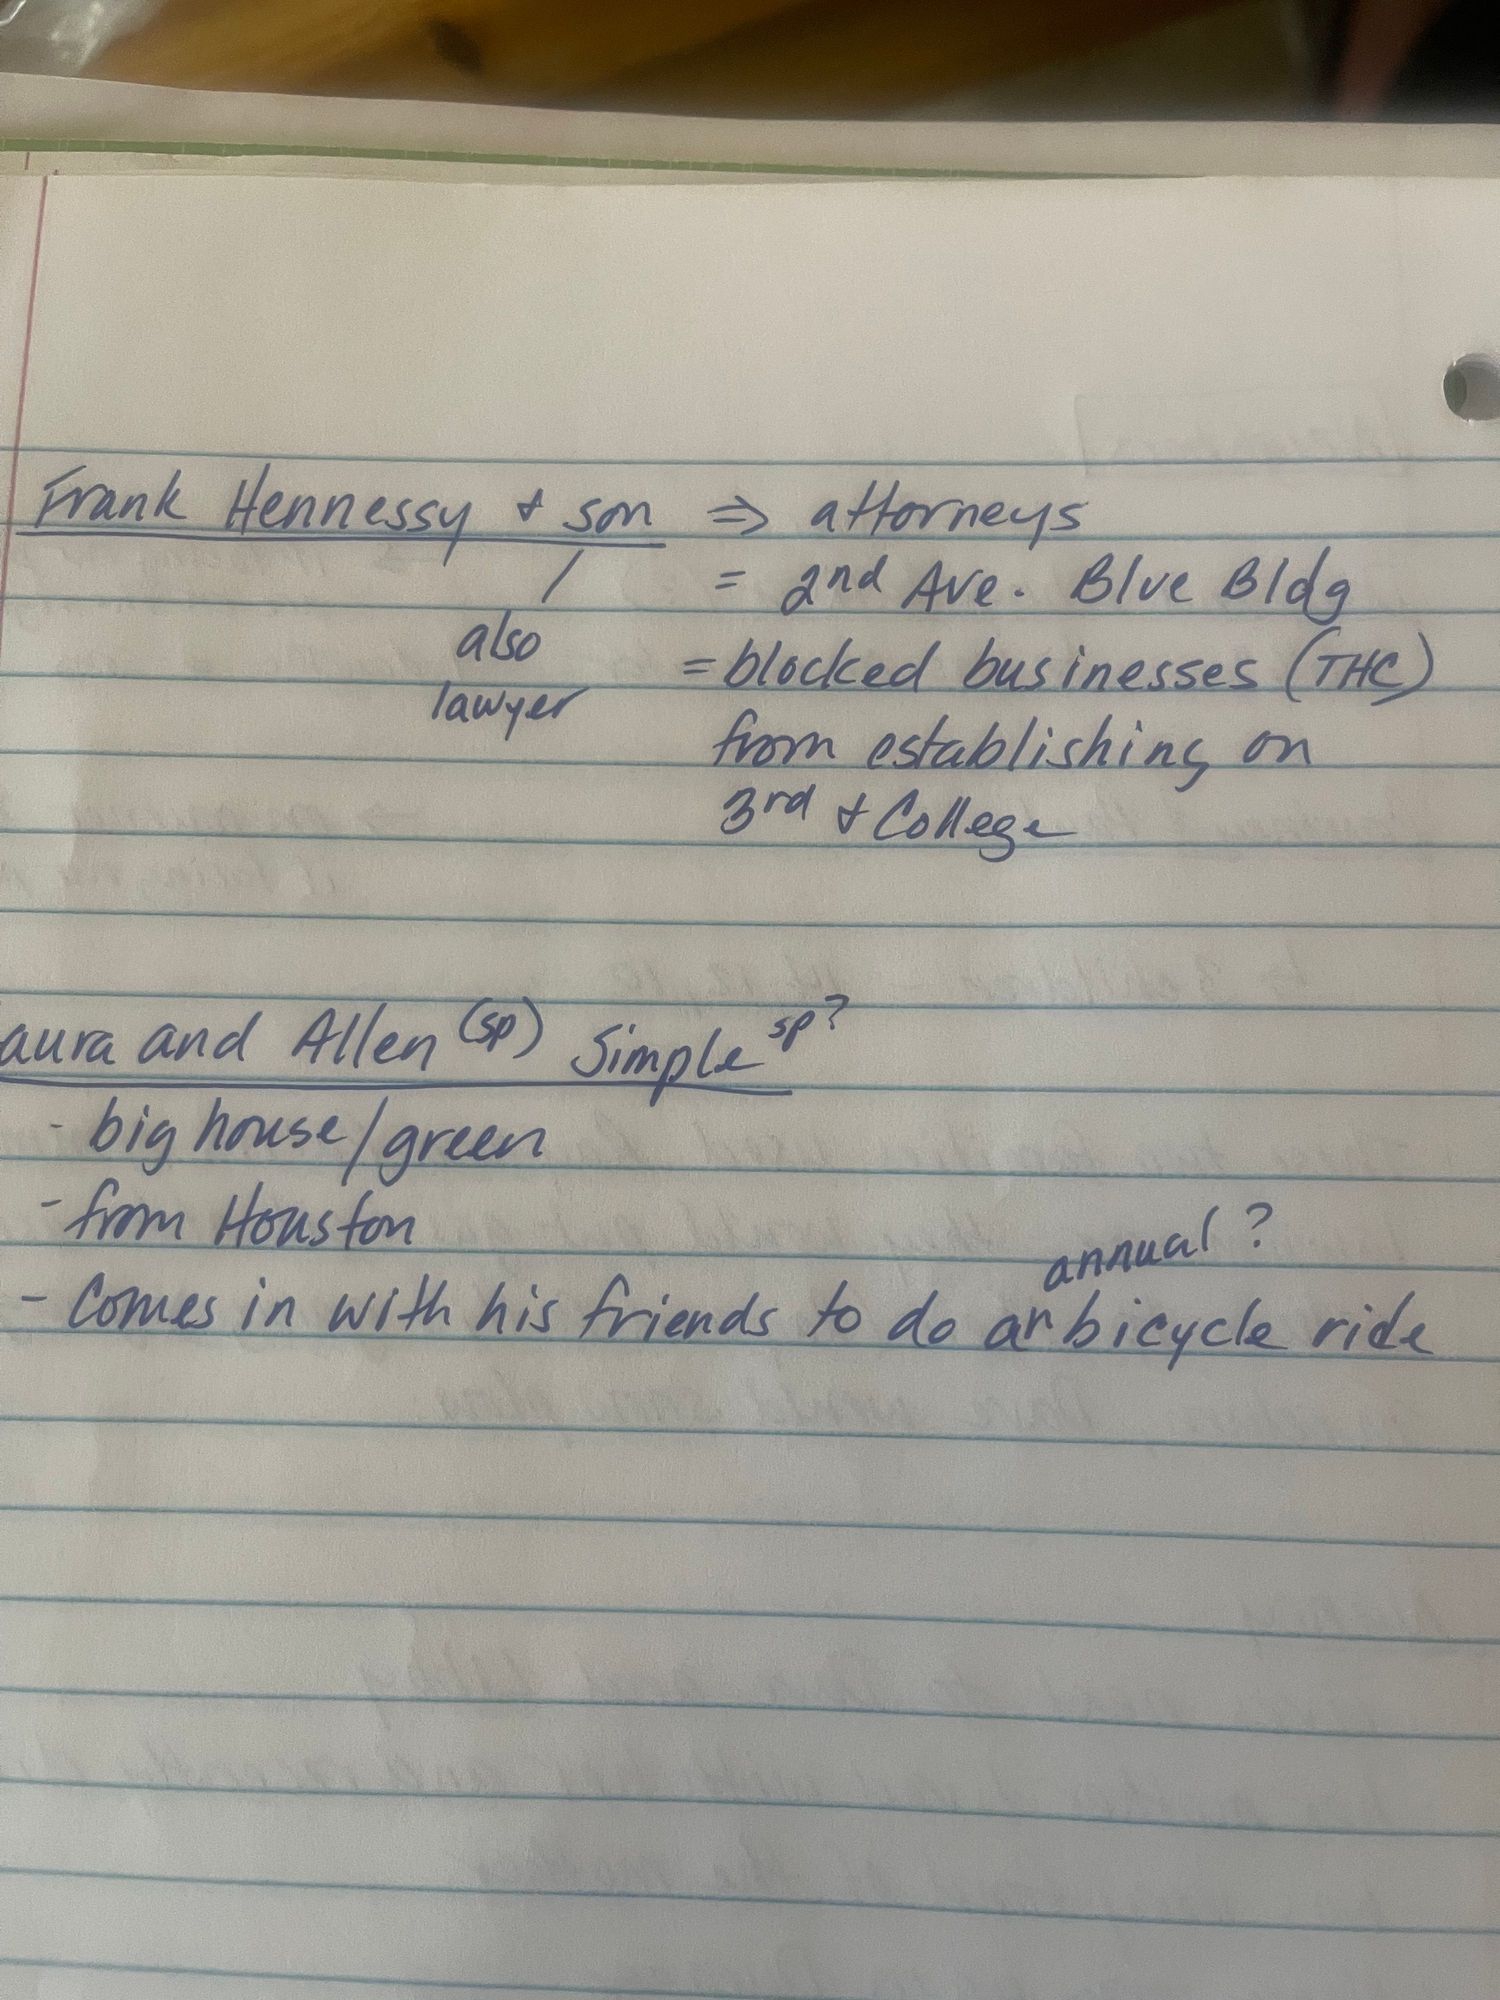 Frank Hennessy + son ⇒ attorneys
= 2nd Ave. Blue Bldg
also
lawyer
= blocked businesses (THC)
from establishing on
3rd + College
aura and Allen (sp) Simple sp?
- big house/green
- from Houston
annual?
- Comes in with his friends to do an bicycle ride